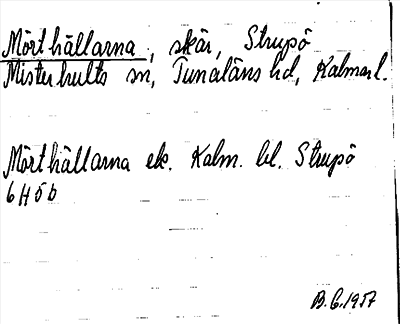 Mörthällarna, skär, Strupö
Misterhults sn, Tunaläns hd, Kalmar l.
Mörthällarna ek. Kalm. bl. Strupö
6H5b
B.G. 1957